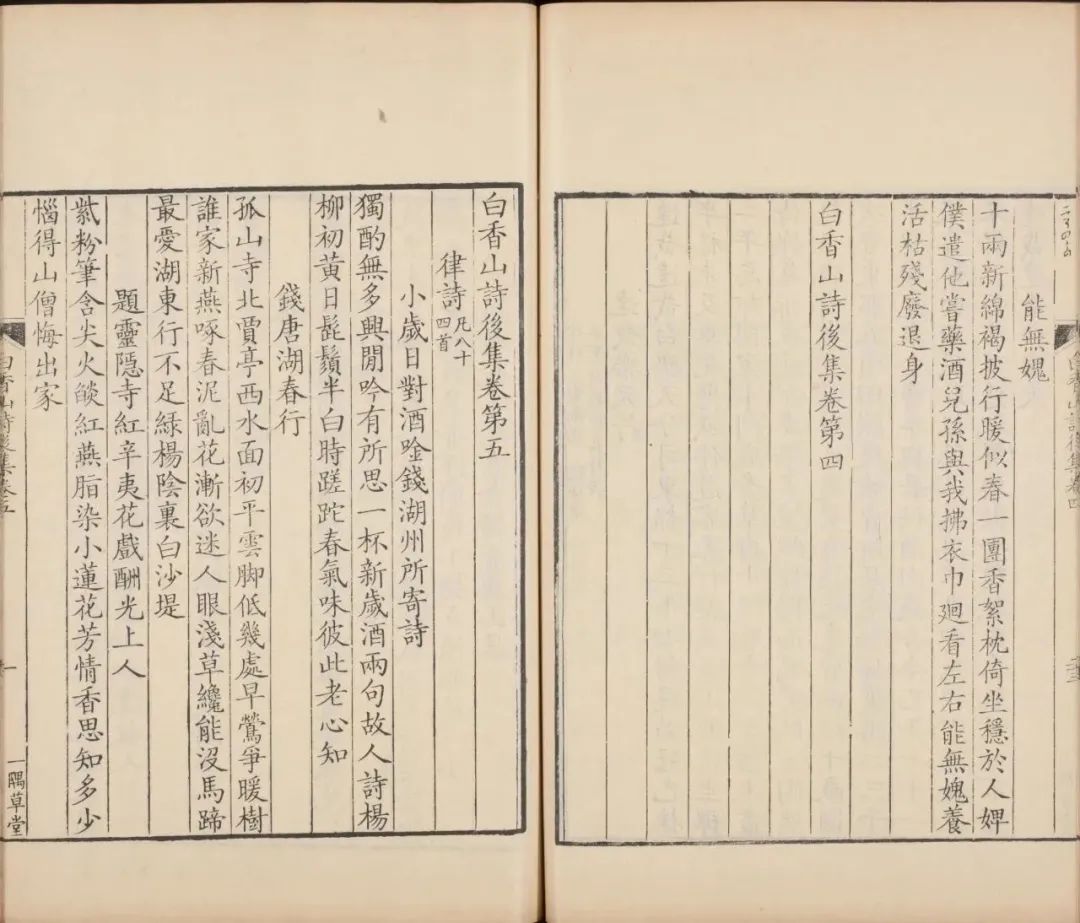 能無媿
十兩新綿褐披行暖似春一團香絮枕倚坐穩於人婢
僕遣他嘗藥酒兒孫與我拂衣巾廻看左右能無媿養
活枯殘廢退身
白香山詩後集卷第四
白香山詩後集卷第五
律詩凡八十四首
小歲日對酒唫錢湖州所寄詩
獨酌無多興閒吟有所思一杯新歲酒兩句故人詩楊
柳初黄日髭鬚半白時蹉跎春氣味彼此老心知
錢唐湖春行
孤山寺北賈亭西水面初平雲脚低幾處早鶯爭暖樹
誰家新燕啄春泥亂花漸欲迷人眼淺草纔能沒馬蹄
最愛湖東行不足綠楊陰裏白沙堤
題靈隱寺紅辛夷花戲酬光上人
紫粉筆含尖火燄紅燕脂染小蓮花芳情香思知多少
惱得山僧悔出家
白香山詩後集卷五
一
一隅草堂